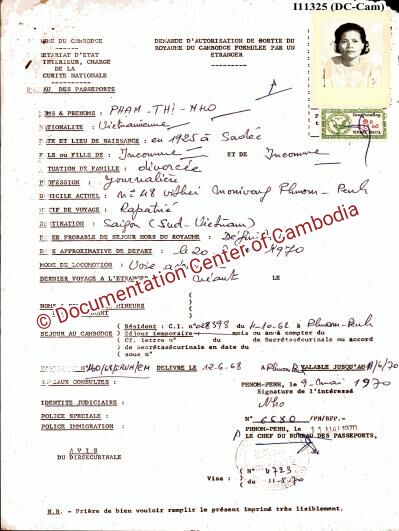 I11325 (DC-Cam)
ME DU CAMBODGE
DEMANDE D'AUTORISATION DE SORTIE DU
ROYAUME DU CAMBODGE FORMULEE PAR UN
ETRANGER
ETARIAT D'ETAT
INTERIEUR, CHARGE
DE LA
CURITE NATIONALE
AU DES PASSEPORTS
MS & PRENOMS : PHAM-THI-NHO
ATIONALITE : Vietnamienne
TE ET LIEU DE NAISSANCE : en 1925 à Sadec
LS ou FILLE de : Inconnu ET DE Inconnue
TUATION DE FAMILLE : divorcée
OFESSION : Journalière
MICILE ACTUEL : n° 48 Vithei Monivong Phnom-Penh
IF DE VOYAGE : Rapatrié
TINATION : Saigon (Sud-Vietnam)
E PROBABLE DE SEJOUR HORS DU ROYAUME :
DATE APPROXIMATIVE DE DEPART : le 20 1970
MODE DE LOCOMOTION : Voie
DERNIER VOYAGE A L'ETRANGER : Néant LE
MINEURS
© Documentation Center of Cambodia
SEJOUR AU CAMBODGE ( Résident : C.I. N° 028398 du 4-10-62 à Phnom-Penh
( Séjour temporaire : mois ou an à compter du
( Cf. lettre n° du Secrétsécurinale ou accord
de Secrétsécurinale en date du
( sous n°
DELIVRE LE 12.6.68 à VALABLE JUSQU'AU
CONSULTES : PHNOM-PENH, le 9 mai 1970
Signature de l'intéressé
Nho
IDENTITE JUDICIAIRE :
POLICE SPECIALE :
POLICE IMMIGRATION :
N° 6680 /PN/BPP.-
PHNOM-PENH, le 11 MAI 1970
LE CHEF DU BUREAU DES PASSEPORTS,
A V I S
DU DIRSECURINALE
Visa : ( N° 4723
( du 11-5-70
N.B. - Prière de bien vouloir remplir le présent imprimé très lisiblement.